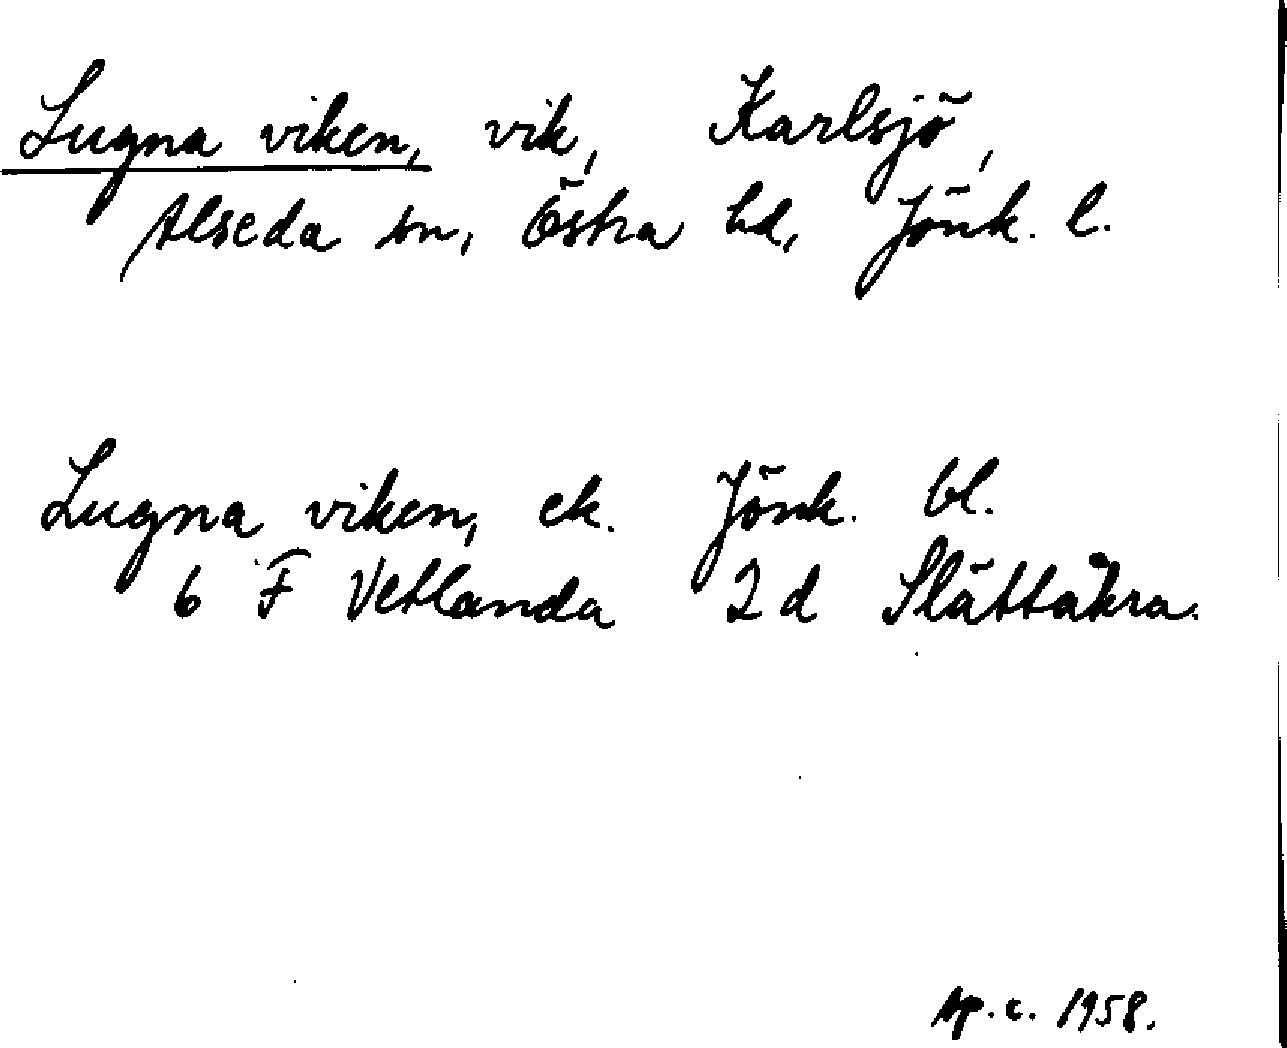 Lugna viken, vik, Karlsjö,
Alseda sn, Östra hd, Jönk. l.
Lugna viken, ek. Jönk. bl.
6 F Vetlanda 2 d Slättåkra.
op. c. 1958.